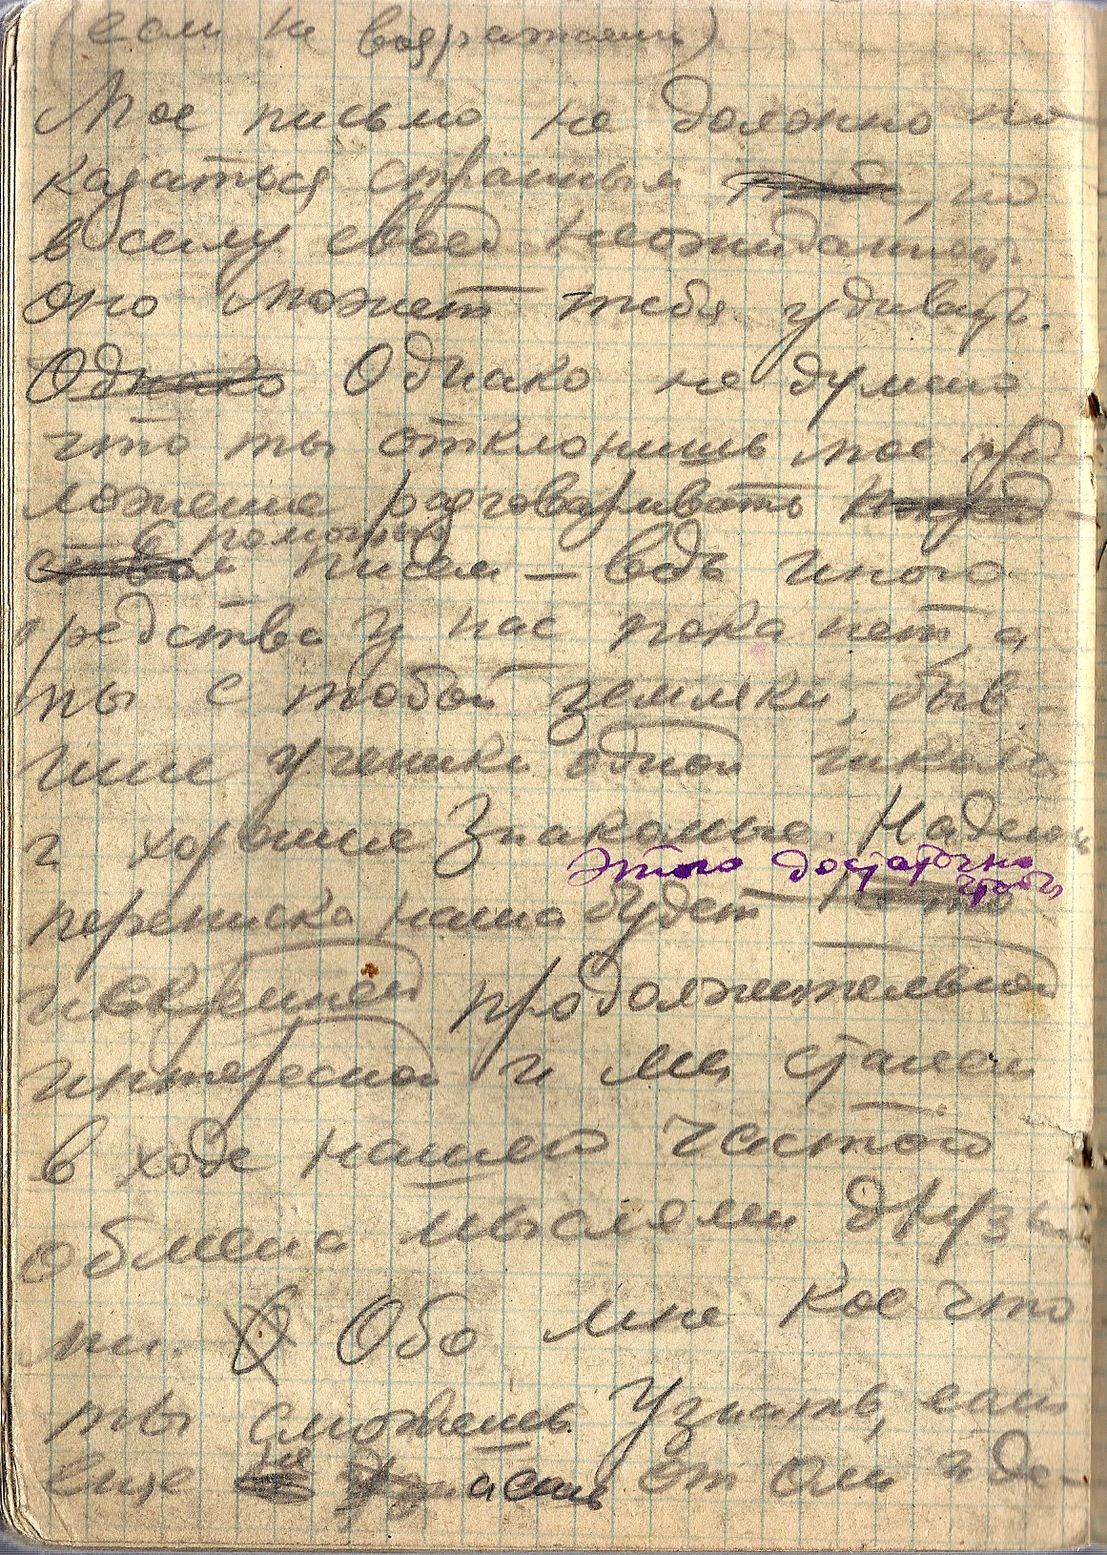 (если не возражаешь)
Мое письмо не должно по
казаться странным, но
в силу своей неожиданной.
оно может тебя удивить.
Однако Однако не думаю
что ты отклонишь мое пред
ложение разговаривать
с помощью
писем — ведь иного
средства у нас пока нет, а
мы с тобой земляки, быв-
шие ученики одной школы
и хорошие знакомые. Надеюсь
этого достаточно
чтобы
переписка наша будет
искренней продолжительной
интересной и мы станем
в ходе нашего частого
обмена мыслями друзья
ми. Обо мне кое что
ты сможешь узнать, если
еще не знаешь от Оли и де-